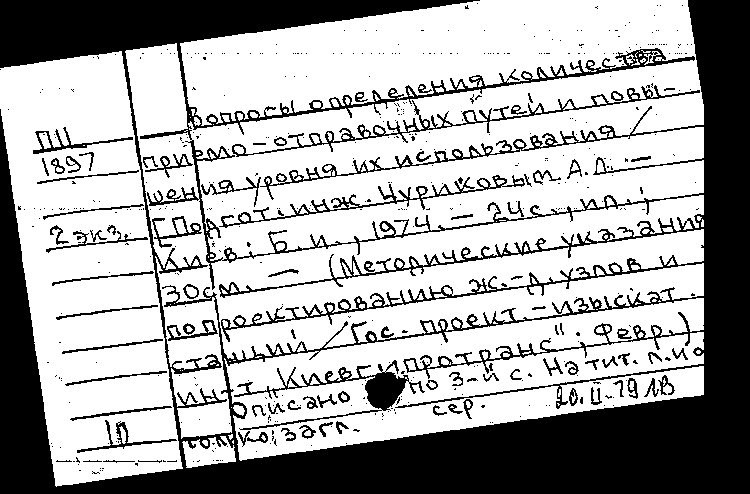 Вопросы определения количества
ПII
1897
приемо-отправочных путей и повы-
шения уровня их использования /
2 экз.
[Подгот. инж. Чуриковым А.Д. —
Киев: Б.и., 1974. — 24 с., ил.;
30 см. — (Методические указания
по проектированию ж.-д. узлов и
станций / Гос. проект.-изыскат.
ин-т "Киевгипротранс"; Февр.)
Описано по 3-й с. На тит. л. и о
сер.
только загл.
20.II-79 ЛВ
10